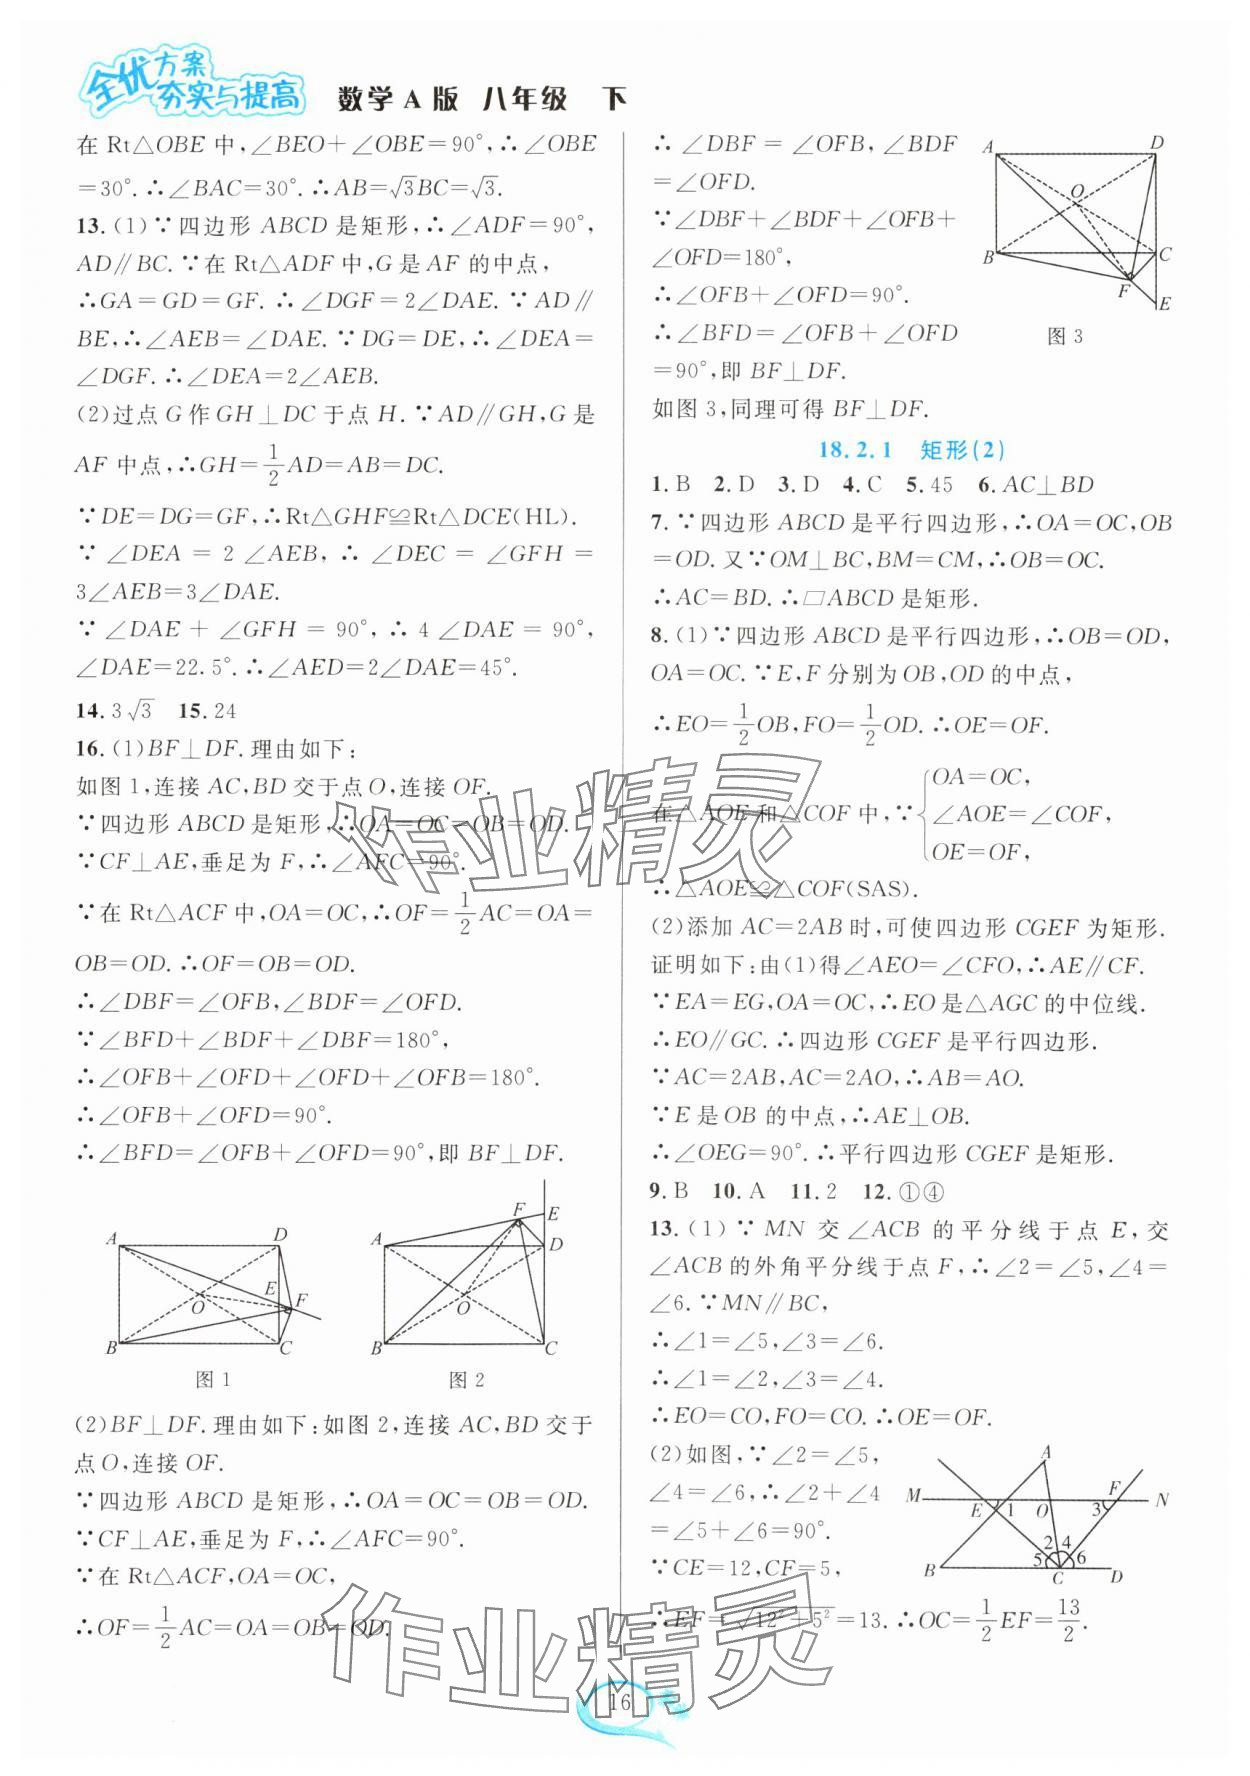 全优方案
夯实与提高
数学A版 八年级 下
在 Rt△OBE 中,∠BEO+∠OBE=90°,∴∠OBE
=30°.∴∠BAC=30°.∴AB=√3BC=√3.
13.(1)∵四边形 ABCD 是矩形,∴∠ADF=90°,
AD∥BC.∵在 Rt△ADF 中,G 是 AF 的中点,
∴GA=GD=GF.∴∠DGF=2∠DAE.∵AD∥
BE,∴∠AEB=∠DAE.∵DG=DE,∴∠DEA=
∠DGF.∴∠DEA=2∠AEB.
(2)过点 G 作 GH⊥DC 于点 H.∵AD∥GH,G 是
AF 中点,∴GH=1/2AD=AB=DC.
∵DE=DG=GF,∴Rt△GHF≌Rt△DCE(HL).
∵∠DEA=2∠AEB,∴∠DEC=∠GFH=
3∠AEB=3∠DAE.
∵∠DAE+∠GFH=90°,∴4∠DAE=90°,
∠DAE=22.5°.∴∠AED=2∠DAE=45°.
14.3√3 15.24
16.(1)BF⊥DF.理由如下:
如图 1,连接 AC,BD 交于点 O,连接 OF.
∵四边形 ABCD 是矩形,∴OA=OC=OB=OD.
∵CF⊥AE,垂足为 F,∴∠AFC=90°.
∵在 Rt△ACF 中,OA=OC,∴OF=1/2AC=OA=
OB=OD.∴OF=OB=OD.
∴∠DBF=∠OFB,∠BDF=∠OFD.
∵∠BFD+∠BDF+∠DBF=180°,
∴∠OFB+∠OFD+∠OFD+∠OFB=180°.
∴∠OFB+∠OFD=90°.
∴∠BFD=∠OFB+∠OFD=90°,即 BF⊥DF.
A D E O F B C
图 1
A F E D O B C
图 2
(2)BF⊥DF.理由如下:如图 2,连接 AC,BD 交于
点O,连接 OF.
∵四边形 ABCD 是矩形,∴OA=OC=OB=OD.
∵CF⊥AE,垂足为 F,∴∠AFC=90°.
∵在 Rt△ACF,OA=OC,
∴OF=1/2AC=OA=OB=OD.
∴∠DBF=∠OFB,∠BDF
=∠OFD.
∵∠DBF+∠BDF+∠OFB+
∠OFD=180°,
∴∠OFB+∠OFD=90°.
∴∠BFD=∠OFB+∠OFD
=90°,即 BF⊥DF.
A D O B C F E
图 3
如图 3,同理可得 BF⊥DF.
18.2.1 矩形(2)
1.B 2.D 3.D 4.C 5.45 6.AC⊥BD
7.∵四边形 ABCD 是平行四边形,∴OA=OC,OB
=OD.又∵OM⊥BC,BM=CM,∴OB=OC.
∴AC=BD.∴□ABCD 是矩形.
8.(1)∵四边形 ABCD 是平行四边形,∴OB=OD,
OA=OC.∵E,F 分别为 OB,OD 的中点,
∴EO=1/2OB,FO=1/2OD.∴OE=OF.
在△AOE 和△COF 中,∵{OA=OC,
∠AOE=∠COF,
OE=OF,
∴△AOE≌△COF(SAS).
(2)添加 AC=2AB 时,可使四边形 CGEF 为矩形.
证明如下:由(1)得∠AEO=∠CFO,∴AE∥CF.
∵EA=EG,OA=OC,∴EO 是△AGC 的中位线.
∴EO∥GC.∴四边形 CGEF 是平行四边形.
∵AC=2AB,AC=2AO,∴AB=AO.
∵E 是 OB 的中点,∴AE⊥OB.
∴∠OEG=90°.∴平行四边形 CGEF 是矩形.
9.B 10.A 11.2 12.①④
13.(1)∵MN 交∠ACB 的平分线于点 E,交
∠ACB 的外角平分线于点 F,∴∠2=∠5,∠4=
∠6.∵MN∥BC,
∴∠1=∠5,∠3=∠6.
∴∠1=∠2,∠3=∠4.
∴EO=CO,FO=CO.∴OE=OF.
(2)如图,∵∠2=∠5,
∠4=∠6,∴∠2+∠4
=∠5+∠6=90°.
∵CE=12,CF=5,
A F M N E 1 O 3 2 4 5 6 B C D
∴EF=√(12²+5²)=13.∴OC=1/2EF=13/2.
作业精灵
作业精灵
16